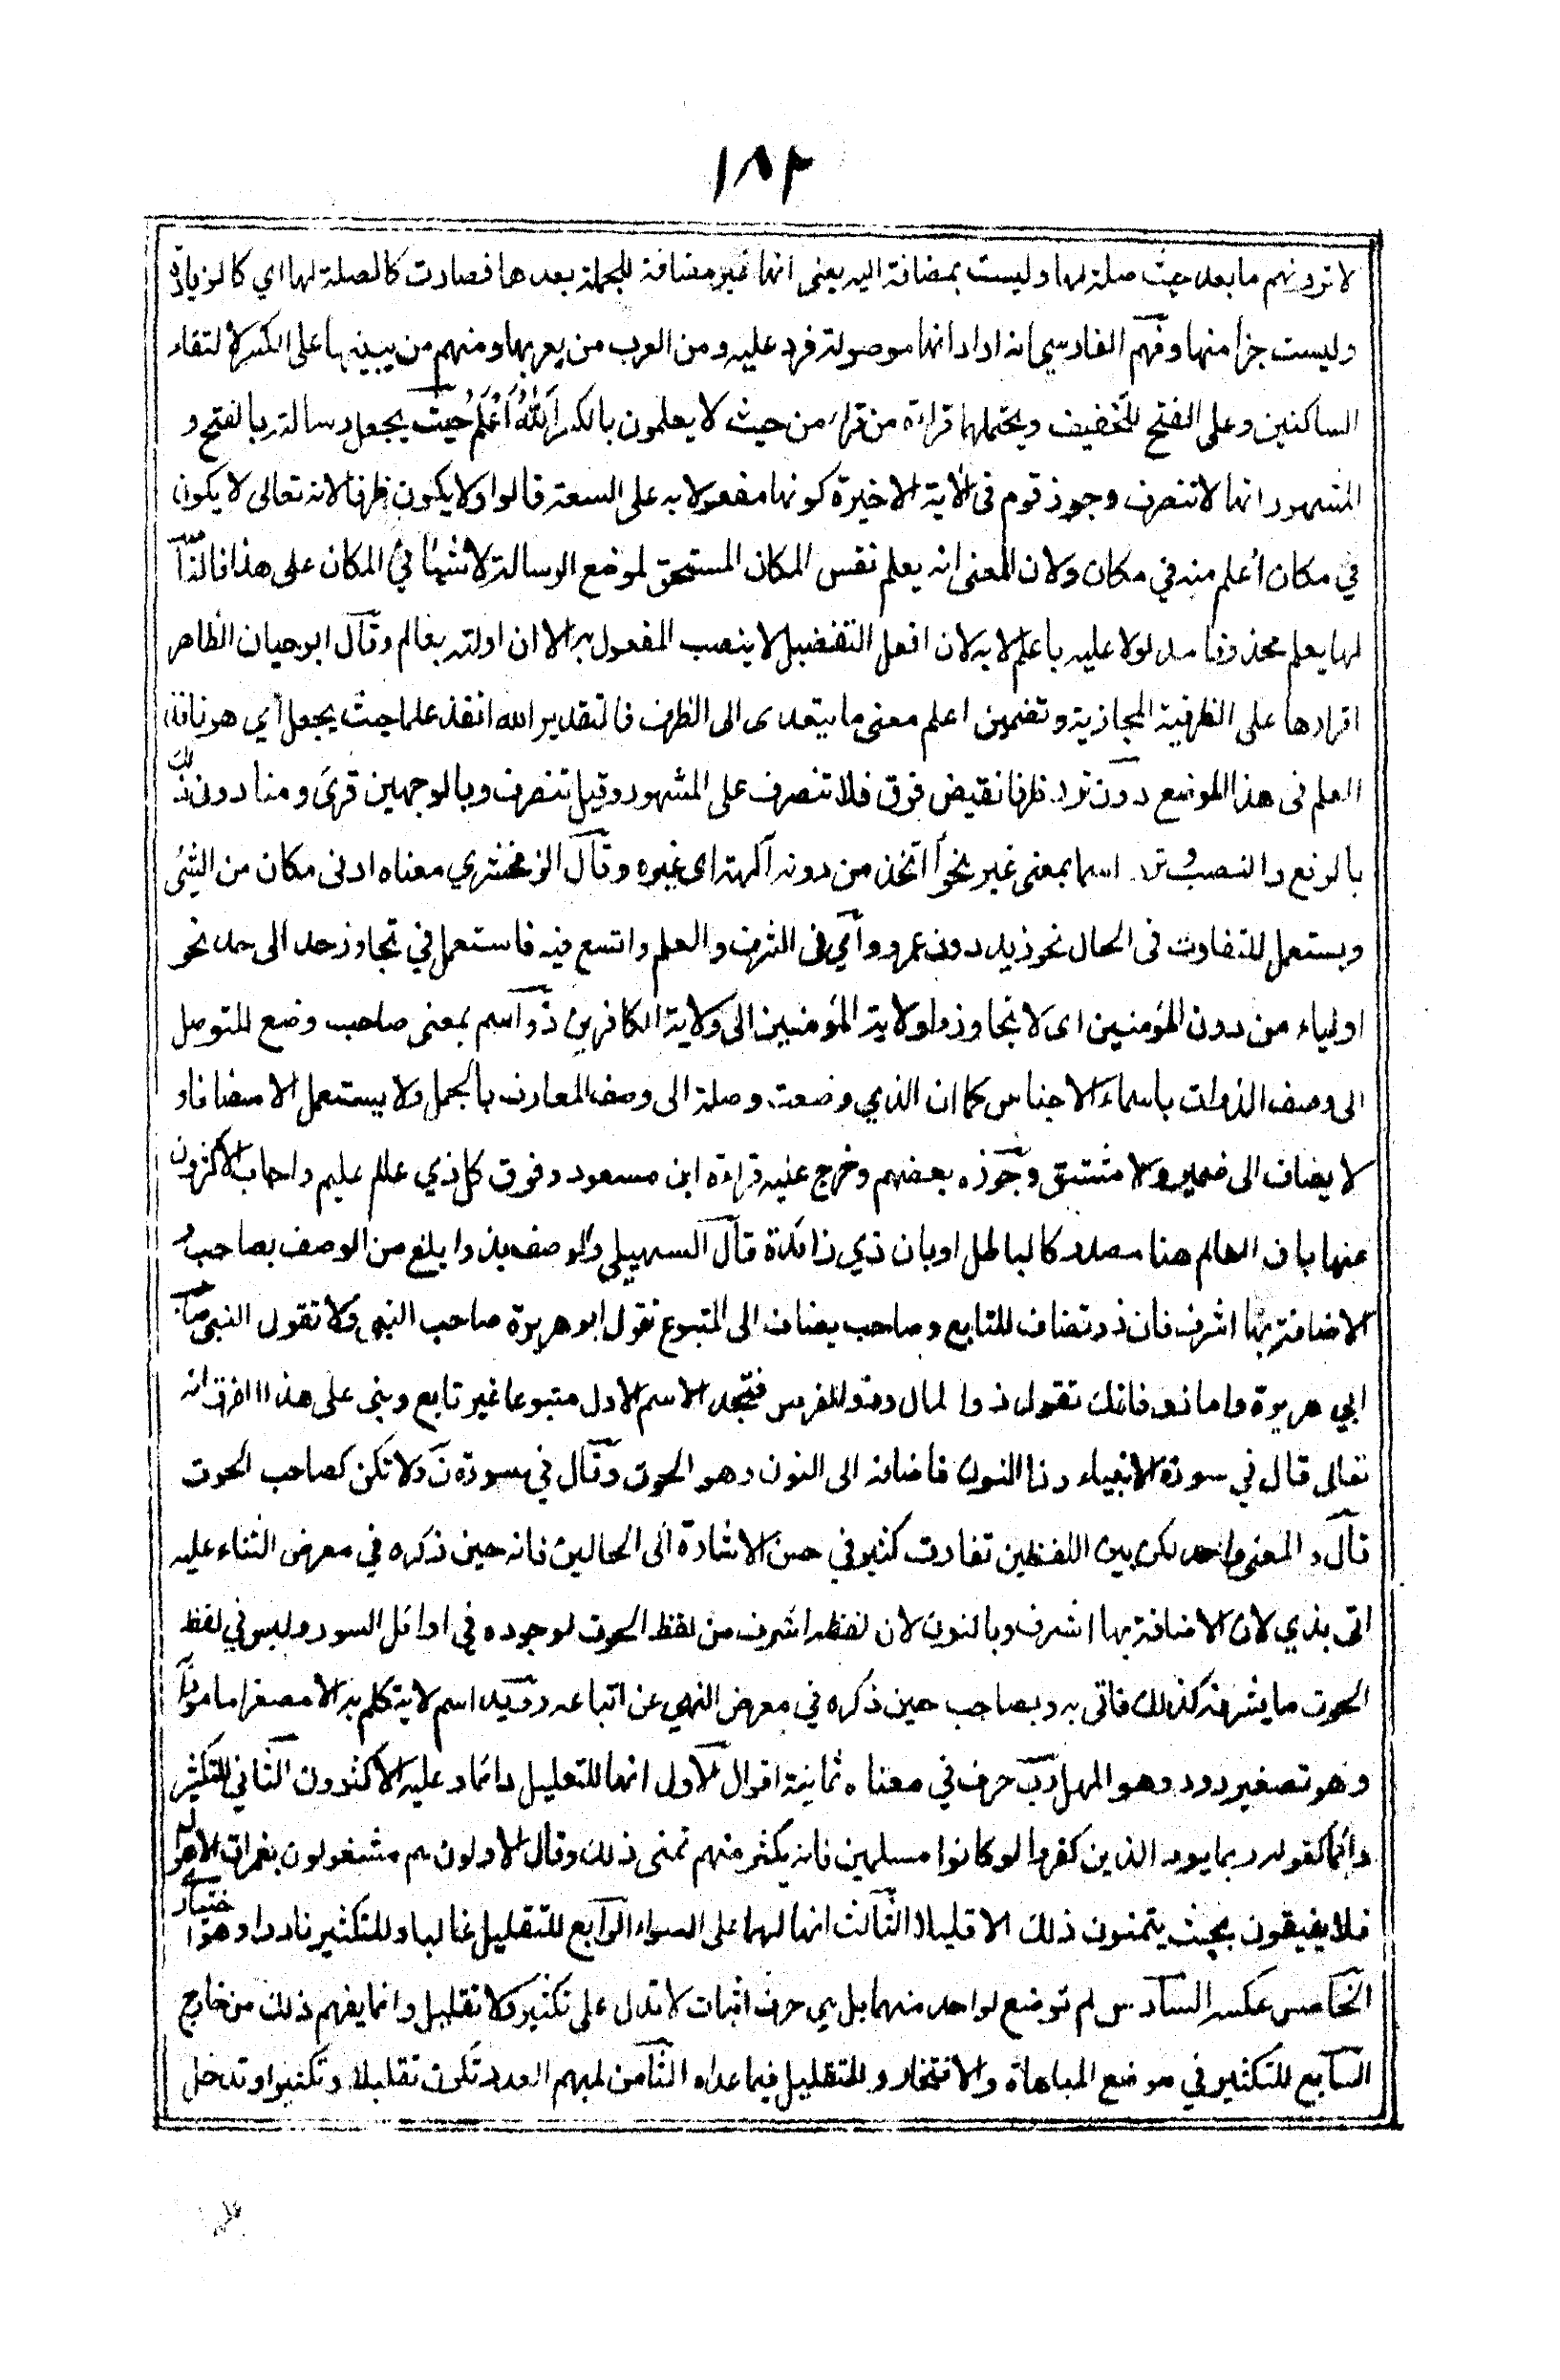 ١٨٢
لا ترونهم ما بعد حيث صلة لها وليست بمضافة اليه يعنى انها غير مضافة للجملة بعدها فصارت كالصلة لها اي كالزيادة
وليست جزا منها وفهم الفارسي انه اراد انها موصولة فرد عليه ومن العرب من يعربها ومنهم من يبنيها على الكسر لالتقاء
الساكنين وعلى الفتح للتخفيف ويحتملهما قراءة من قرا من حيث لا يعلمون بالكسر اَللّٰهُ اَعْلَمُ حَيْثَ يجعل رسالته بالفتح و
المشهور انها لا تتصرف وجوز قوم فى الاية الاخيرة كونها مفعولا به على السعة قالوا ولا يكون ظرفا لانه تعالى لا يكون
في مكان اعلم منه في مكان ولان المعنى انه يعلم نفس المكان المستحق لموضع الرسالة لا شيئا في المكان على هذا فالناصب
لها يعلم محذوفا مدلولا عليه باعلم لا به لان افعل التفضيل لا ينصب المفعول به الا ان اولته بعالم وقال ابو حيان الظاهر
اقرارها على الظرفية المجازية وتضمين اعلم معنى ما يتعدى الى الظرف فالتقدير الله انفذ علما حيث يجعل اي هو نافذ
العلم فى هذا الموضع دون ترد ظرفا نقيض فوق فلا تتصرف على المشهور وقيل تتصرف وبالوجهين قرئ ومنا دون ذلك
بالرفع والنصب وترد اسما بمعنى غير نحو أ اتخذ من دونه آلهة اى غيره وقال الزمخشري معناه ادنى مكان من الشئ
ويستعمل للتفاوت فى الحال نحو زيد دون عمرو وأي فى الشرف والعلم واتسع فيه فاستعمل في تجاوز حد الى حد نحو
اولياء من دون المؤمنين اى لا تجاوزوا ولاية المؤمنين الى ولاية الكافرين ذو اسم بمعنى صاحب وضع للتوصل
الى وصف الذوات باسماء الاجناس كما ان الذي وضعت وصلة الى وصف المعارف بالجمل ولا يستعمل الا مضافا و
لا يضاف الى ضمير ولا مشتق وجوزه بعضهم وخرج عليه قراءة ابن مسعود وفوق كل ذي عالم عليم واجاب الاكثرون
عنها بان العالم هنا مصدر كالباطل او بان ذي زائدة قال السهيلي والوصف بذوا بلغ من الوصف بصاحب و
الاضافة بها اشرف فان ذو تضاف للتابع وصاحب يضاف الى المتبوع تقول ابو هريرة صاحب النبي ولا تقول النبي صاحب
ابي هريرة واما ذو فانك تقول ذو المال وذو الفرس فتجد الاسم الاول متبوعا غير تابع وبنى على هذا الفرق انه
تعالى قال في سورة الانبياء وذا النون فاضافه الى النون وهو الحوت وقال في سورة نٓ ولا تكن كصاحب الحوت
قال والمعنى واحد لكن بين اللفظين تفاوت كثير في حسن الاشارة الى الحالين فانه حين ذكره في معرض الثناء عليه
اتى بذي لان الاضافة بها اشرف وبالنون لان لفظه اشرف من لفظ الحوت لوجوده في اوائل السور وليس في لفظ
الحوت ما يشرفه كذلك فاتى به وبصاحب حين ذكره في معرض النهي عن اتباعه رويد اسم لا يتكلم به الا مصغرا مامورا به
وهو تصغير رود وهو المهل رب حرف في معناه ثمانية اقوال الاول انها للتعليل دائما وعليه الاكثرون الثاني للتكثير
دائما كقوله ربما يود الذين كفروا لو كانوا مسلمين فانه يكثر منهم تمنى ذلك وقال الاولون هم مشغولون بغمرات الاهوال
فلا يفيقون بحيث يتمنون ذلك الا قليلا الثالث انها لهما على السواء الرابع للتقليل غالبا وللتكثير نادرا وهو اختيار
الخامس عكسه السادس لم توضع لواحد منهما بل هي حرف اثبات لا تدل على تكثير ولا تقليل وانما يفهم ذلك من خارج
السابع للتكثير في موضع المباهاة والافتخار وللتقليل فيما عداه الثامن لمبهم العدد تكون تقليلا وتكثيرا وتدخل